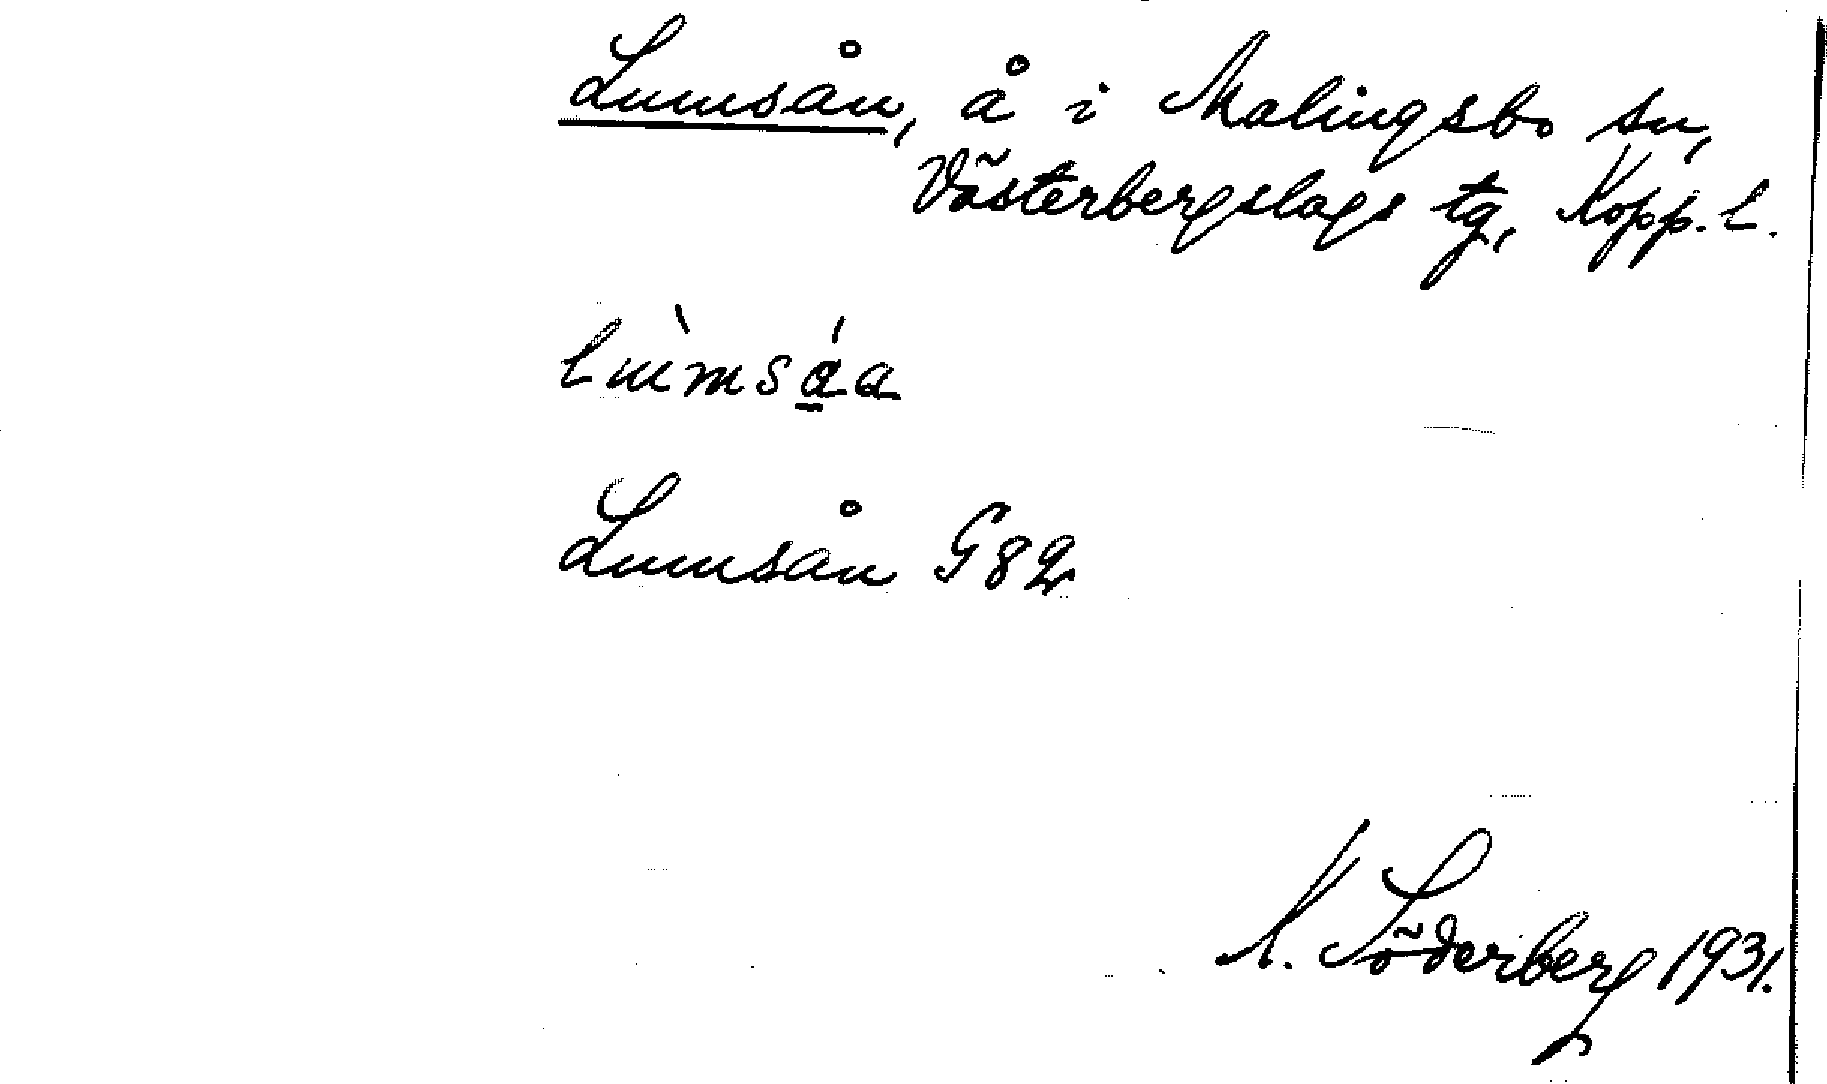 Lumsån, å i Malingsbo sn,
Västerbergslags tg, Kopp. l.
lùmsá̱a
Lumsån G82
A. Söderberg 1931.